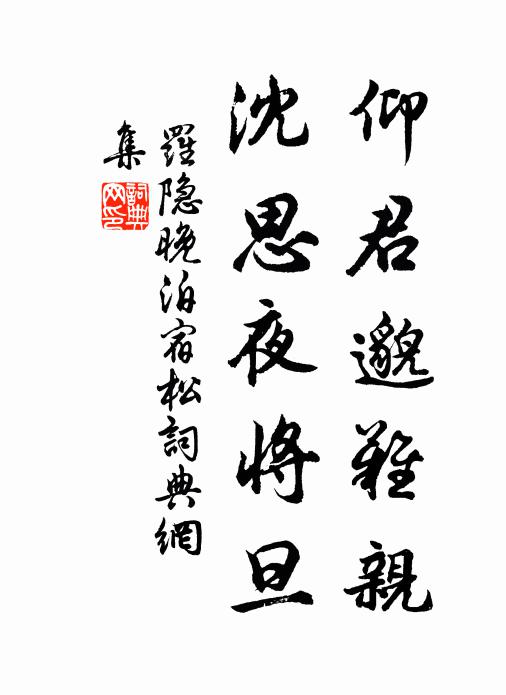 仰君邈難親
沈思夜將旦
羅隐晚泊宿松詞典網
集
詞典網印